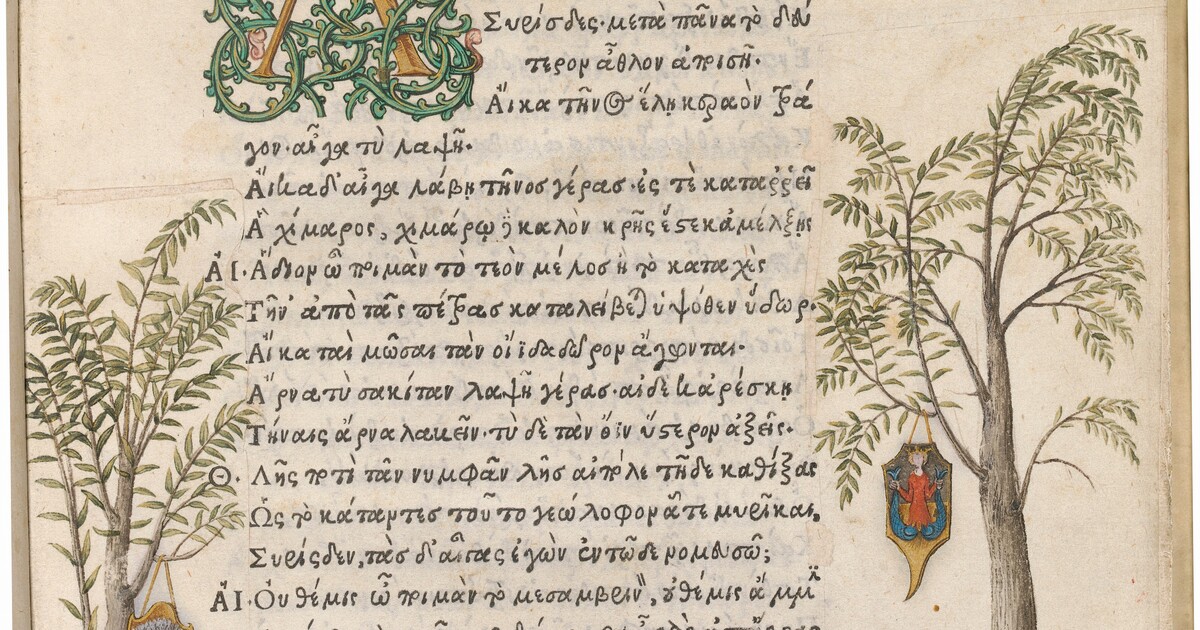 Συρίσδες· μετὰ πᾶνα τὸ δεύ
τερον ἆθλον ἀποισῇ·
Αἴκα τῆνΟς ἕλῃ κεραὸν τρά
γον· αἶγα τὺ λαψῇ·
Αἴκα δ' αἶγα λάβῃ τῆνος γέρας· ἐς τὲ καταῤῥεῖ
Ἁ χίμαρος, χιμάρῳ δὲ καλὸν κρῆς ἔστε κ' ἀμέλξῃς
ΑΙ. Ἅδιον ὦ ποιμὰν τὸ τεὸν μέλος ἢ τὸ καταχὲς
Τῆν' ἀπὸ τᾶς πέτρας καταλείβεται ὑψόθεν ὕδωρ·
Αἴκα ταὶ μῶσαι τὰν οἰΐδα δῶρον ἄγωνται·
Ἄρνα τὺ σακίταν λαψῇ γέρας· αἰ δέ κ' ἀρέσκῃ
Τήναις ἄρνα λαβεῖν· τὺ δὲ τὰν ὄϊν ὕστερον ἀξεῖς·
Θ. Λῇς ποτὶ τᾶν νυμφᾶν λῇς αἰπόλε τῇδε καθίξας
Ὡς τὸ κάταντες τοῦτο γεώλοφον ἅτε μυρῖκαι,
Συρίσδεν, τὰς δ' αἶγας ἐγὼν ἐν τῷδε νομευσῶ;
ΑΙ. Οὐ θέμις ὦ ποιμὰν τὸ μεσαμβρινὸν, οὐ θέμις ἄμμιν